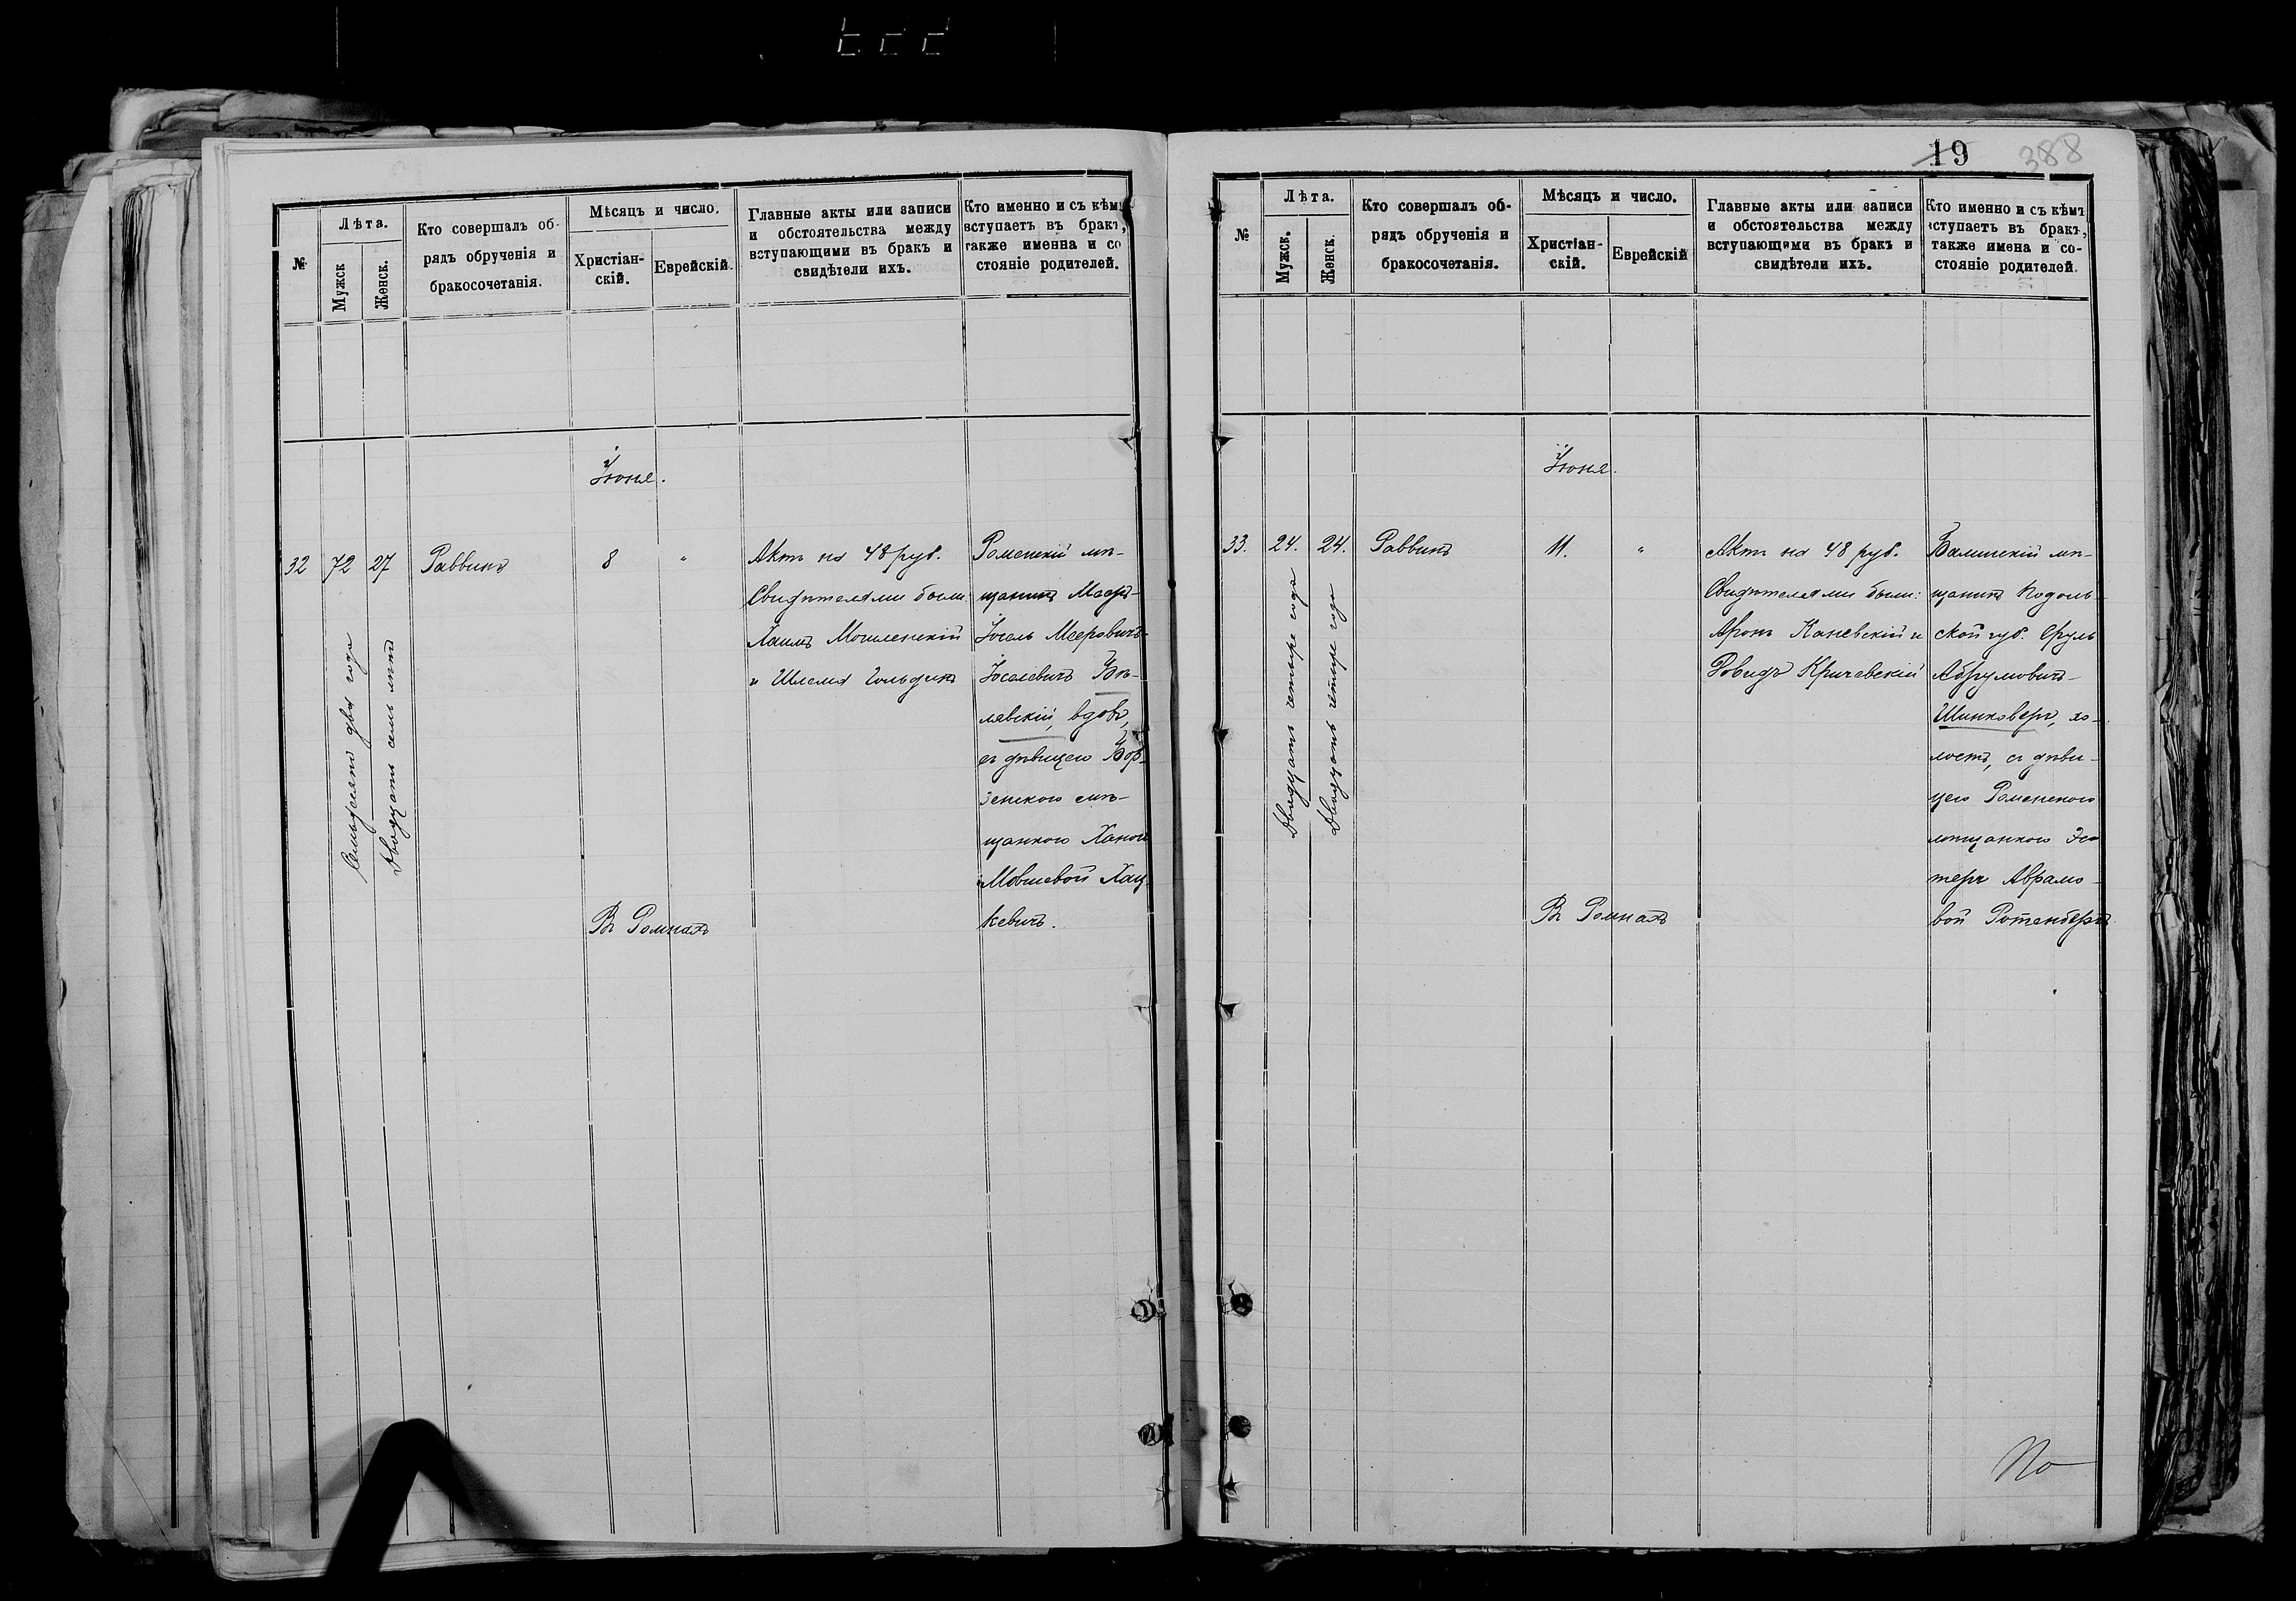 №
Лѣта.
Мужск
Женск.
Кто совершалъ об-
рядъ обрученія и
бракосочетанія.
Мѣсяцъ и число.
Христіан-
скій.
Еврейскій.
Главные акты или записи
и обстоятельства между
вступающими въ бракъ и
свидѣтели ихъ.
Кто именно и съ кѣмъ
вступаетъ въ бракъ,
также именна и со
стояніе родителей.
Іюня.
32 72 27 Раввинъ 8 "
Семьдесятъ два года
Двадцать семь лѣтъ
Актъ на 48 руб.
Свидѣтелями были:
Хаимъ Могиленскій
и Шлема Гольдинъ
Роменскій мѣ-
щанинъ Мееръ-
Іосель Мееровичъ-
Іоселевичъ
левскій, вдовъ,
съ дѣвицею Бор-
зенскою мѣ-
щанкою Ханою
Мовшевой Хац-
кевичъ.
Въ Ромнахъ
19
388
№
Лѣта.
Мужск.
Женск.
Кто совершалъ об-
рядъ обрученія и
бракосочетанія.
Мѣсяцъ и число.
Христіан-
скій.
Еврейскій
Главные акты или записи
и обстоятельства между
вступающими въ бракъ и
свидѣтели ихъ.
Кто именно и съ кѣмъ
вступаетъ въ бракъ,
также имена и со-
стояніе родителей.
Іюня.
33. 24. 24. Раввинъ 11. "
Двадцать четыре года
Двадцать четыре года
Актъ на 48 руб.
Свидѣтелями были:
Аронъ Каневскій и
Довидъ Кричевскій
Балтскій мѣ-
щанинъ Подоль-
ской губ. Сруль
Абрумовичъ-
Шинкверъ, хо-
лостъ, съ дѣви-
цею Роменскою
мѣщанкою Эс-
терѣ Аврамо-
вой Ротенбергъ
Въ Ромнахъ